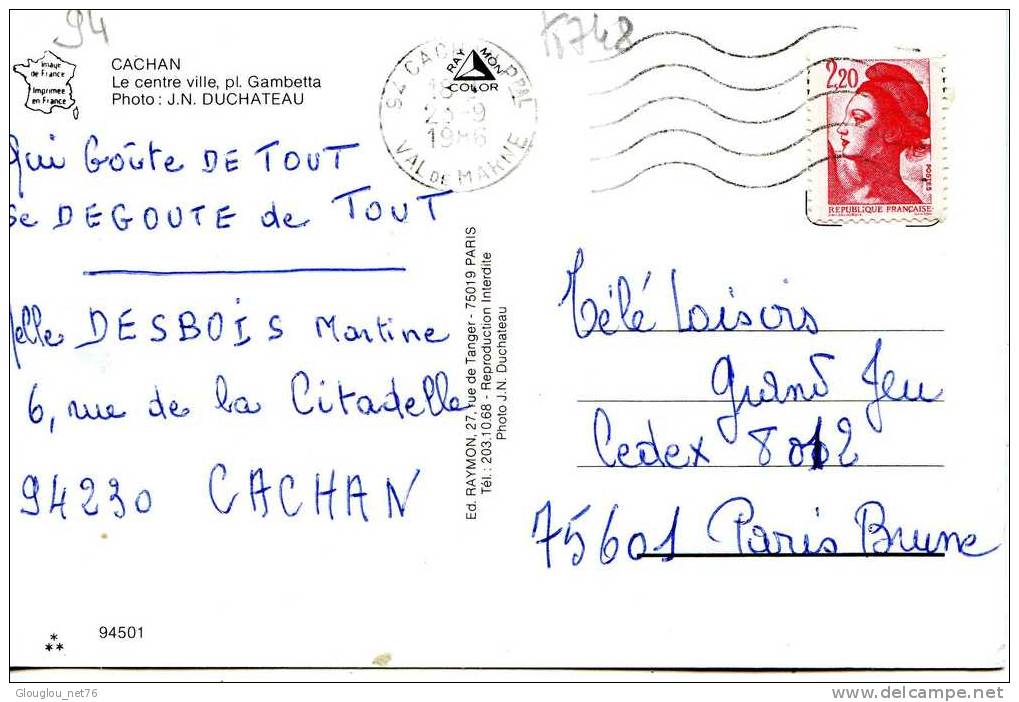 94
K748
image
de France
Imprimée
en France
CACHAN
Le centre ville, pl. Gambetta
Photo : J.N. DUCHATEAU
RAYMON
COLOR
94 CACHAN PPAL
23-9
1986
VAL DE MARNE
2,20
POSTES
REPUBLIQUE FRANÇAISE
Qui Goûte DE TOUT
se DEGOUTE de TOUT
Melle DESBOIS Martine
6, rue de la Citadelle
94230 CACHAN
Ed. RAYMON, 27, rue de Tanger - 75019 PARIS
Tél. : 203.10.68 - Reproduction Interdite
Photo J.N. Duchateau
Télé Loisirs
Grand Jeu
Cedex 8012
75601 Paris Brune
94501
Glouglou_net76
delcampe.net